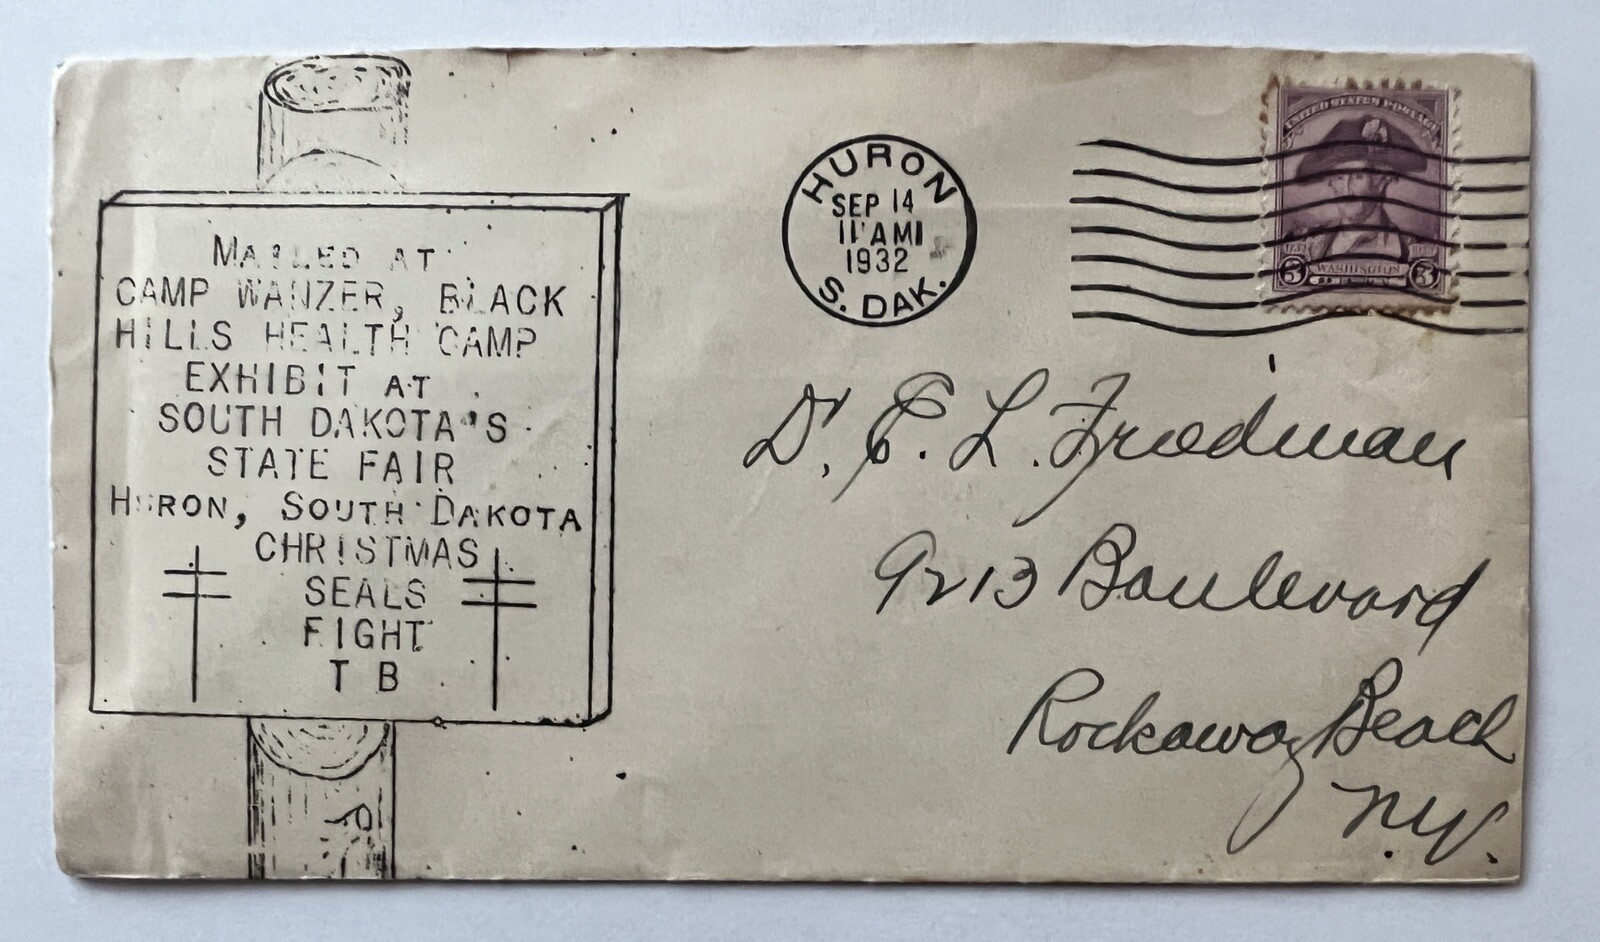 MAILED AT
CAMP WANZER, BLACK
HILLS HEALTH CAMP
EXHIBIT AT
SOUTH DAKOTA'S
STATE FAIR
HURON, SOUTH DAKOTA
CHRISTMAS
SEALS
FIGHT
T B
HURON
SEP 14
11 AM
1932
S. DAK.
UNITED STATES POSTAGE
3 WASHINGTON 3
Dr. E. L. Friedman
9213 Boulevard
Rockaway Beach
N.Y.